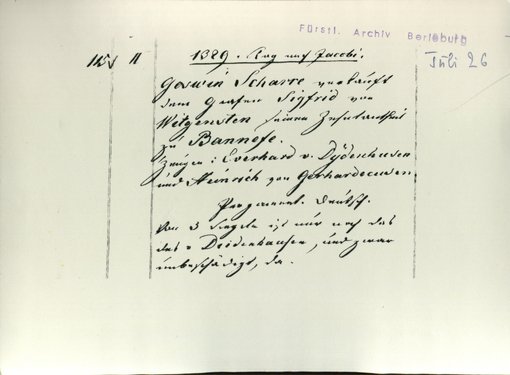 Fürstl. Archiv Berleburg
Juli 26
115 11
1329. Tag nach Jacobi.
Goswin Scharre verkauft
dem Grafen Sigfrid von
Witgensten seinen Zehntantheil
zu Bannefe.
Zeugen: Everhard v. Dydenhusen
und Heinrich von Gerhardecusen
Pergament. Deutsch.
Von 3 Siegeln ist nur noch das
das v Deidenhausen, und zwar
unbeschädigt, da.